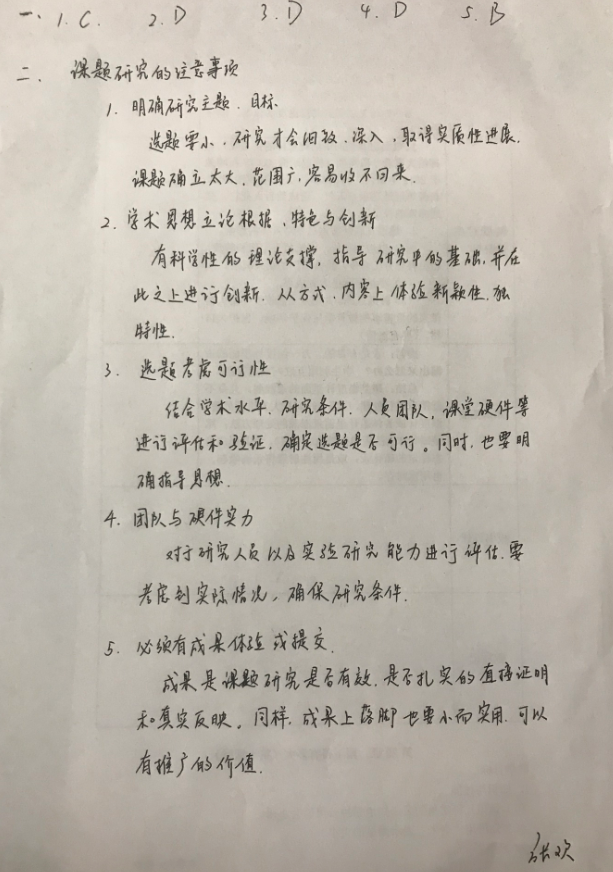 一、1. C.  2. D  3. D  4. D  5. B
二、课题研究的注意事项
1. 明确研究主题、目标
选题要小,研究才会细致、深入,取得实质性进展.
课题确立太大,范围广,容易收不回来.
2. 学术思想立论根据、特色与创新
有科学性的理论支撑,指导研究中的基础,并在
此之上进行创新.从方式、内容上体验新颖性、独
特性.
3. 选题考虑可行性
结合学术水平、研究条件、人员团队,课堂硬件等
进行评估和验证.确定选题是否可行。同时,也要明
确指导思想.
4. 团队与硬件实力
对于研究人员以及实验研究能力进行评估.要
考虑到实际情况,确保研究条件.
5. 必须有成果体验或提交.
成果是课题研究是否有效,是否扎实的直接证明
和真实反映。同样,成果上落脚也要小而实用.可以
有推广的价值.
张欢